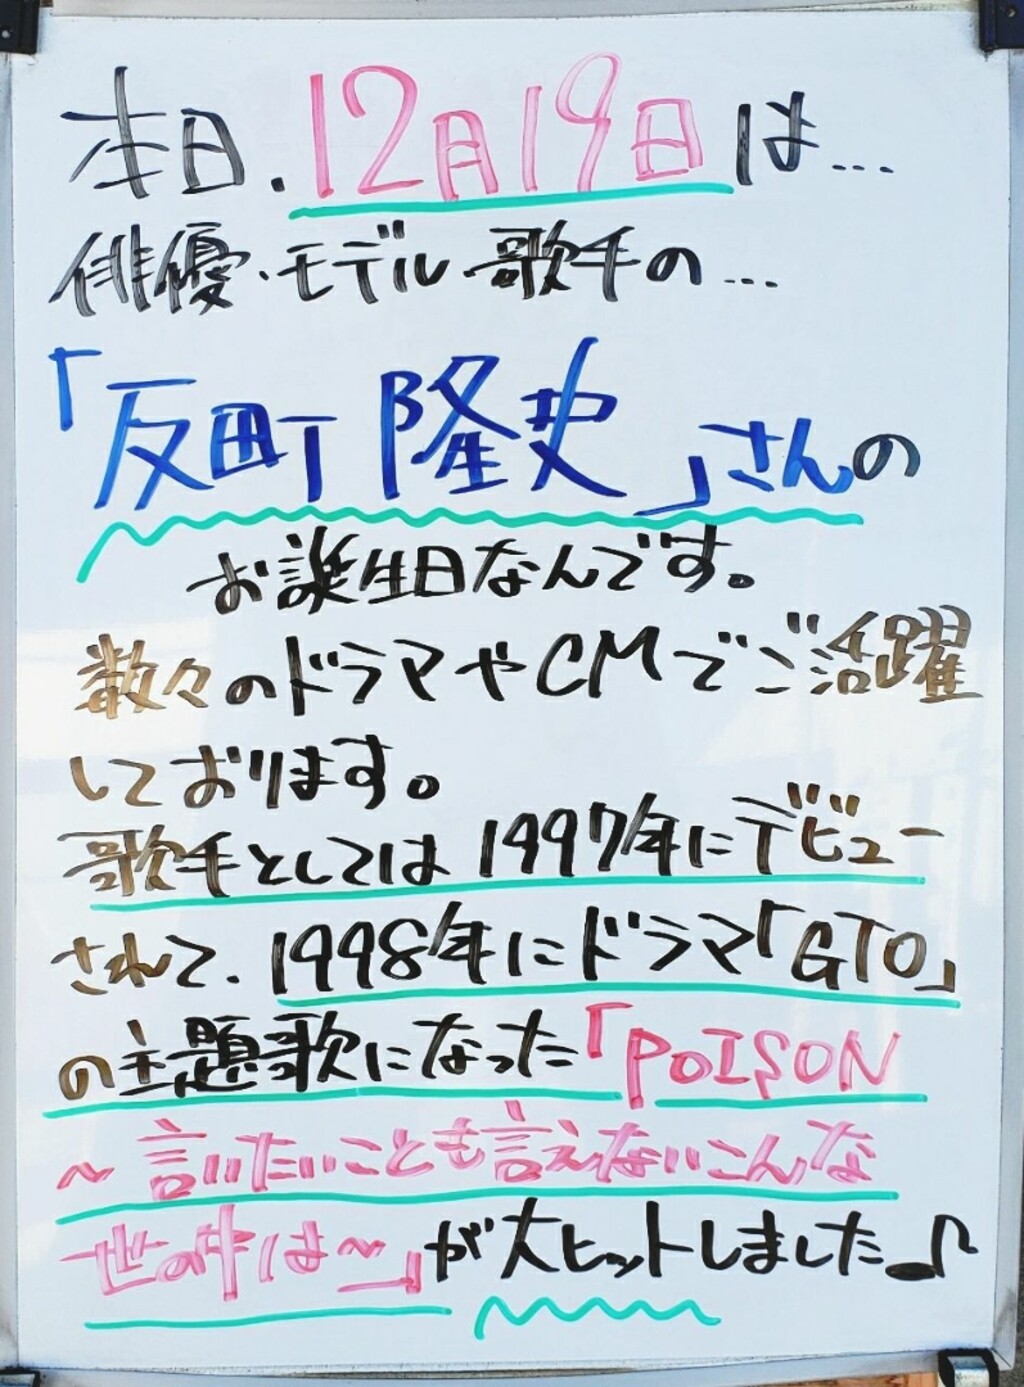 本日、12月19日は…
俳優・モデル・歌手の…
「反町隆史」さんの
お誕生日なんです。
数々のドラマやCMでご活躍
しております。
歌手としては1997年にデビュー
されて、1998年にドラマ「GTO」
の主題歌になった「POISON
～言いたいことも言えないこんな
世の中は～」が大ヒットしました♪